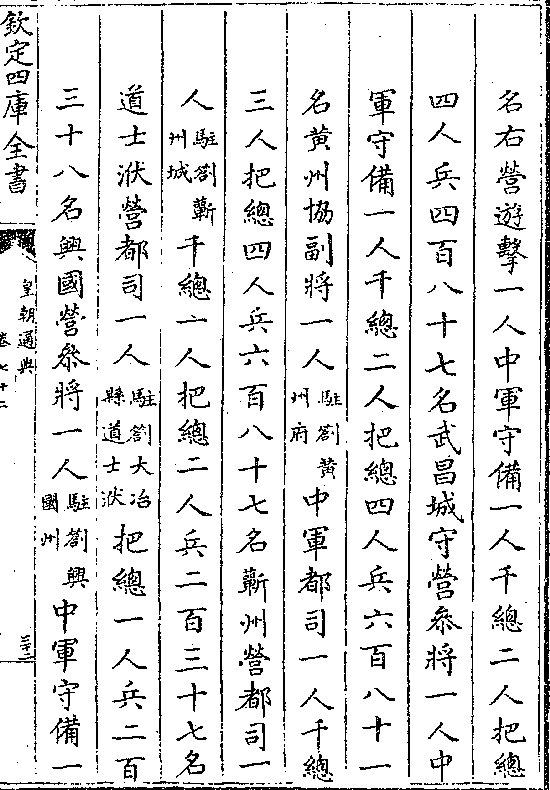 名右營遊擊一人中軍守備一人千總二人把總
四人兵四百八十七名武昌城守營叅將一人中
軍守備一人千總二人把總四人兵六百八十一
名黃州協副將一人駐劄黃州府中軍都司一人千總
三人把總四人兵六百八十七名蘄州營都司一
人駐劄蘄州城千總一人把總二人兵二百三十七名
道士洑營都司一人駐劄大冶縣道士洑把總一人兵二百
三十八名興國營叅將一人駐劄興國州中軍守備一
欽定四庫全書
皇朝通典
卷七十二